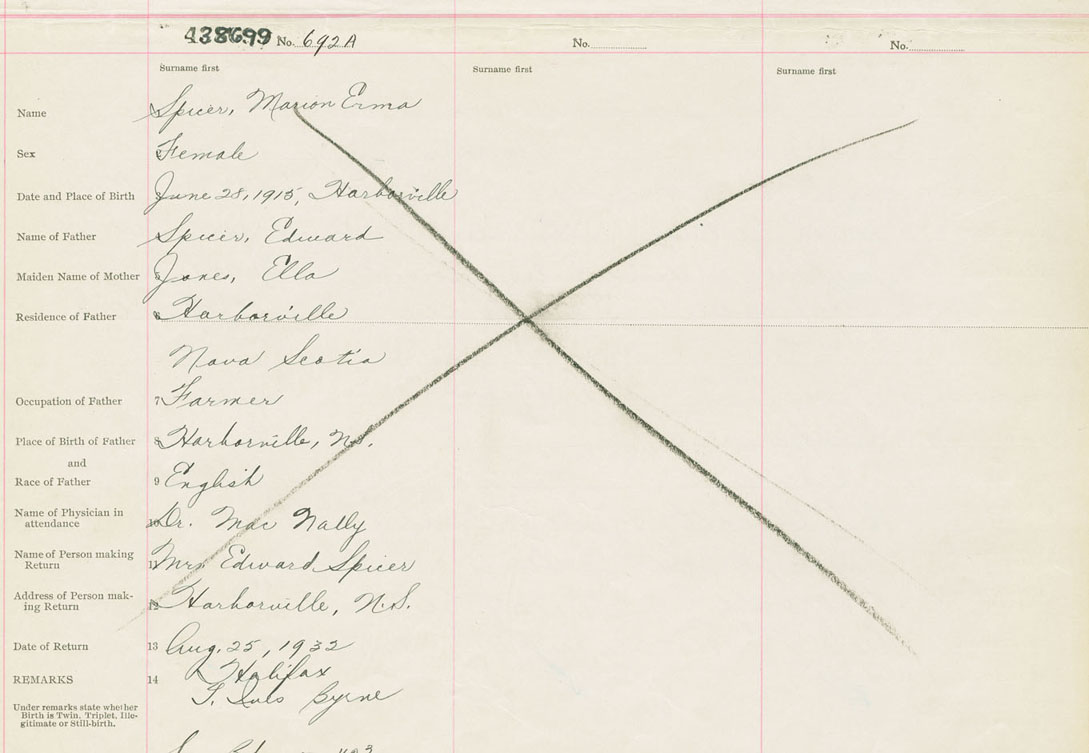 438699 No. 692A No. No.
Surname first Surname first Surname first
Name Spicer, Marion Erma
Sex Female
Date and Place of Birth June 28, 1915, Harborville
Name of Father Spicer, Edward
Maiden Name of Mother 5 Jones, Ella
Residence of Father 6 Harborville
Nova Scotia
Occupation of Father 7 Farmer
Place of Birth of Father 8 Harborville, N.S.
and
Race of Father 9 English
Name of Physician in
attendance 10 Dr. Mac Nally
Name of Person making
Return 11 Mrs Edward Spicer
Address of Person mak-
ing Return 12 Harborville, N.S.
Date of Return 13 Aug. 25, 1932
Halifax
REMARKS 14
Byrne
Under remarks state whether
Birth is Twin, Triplet, Ille-
gitimate or Still-birth.